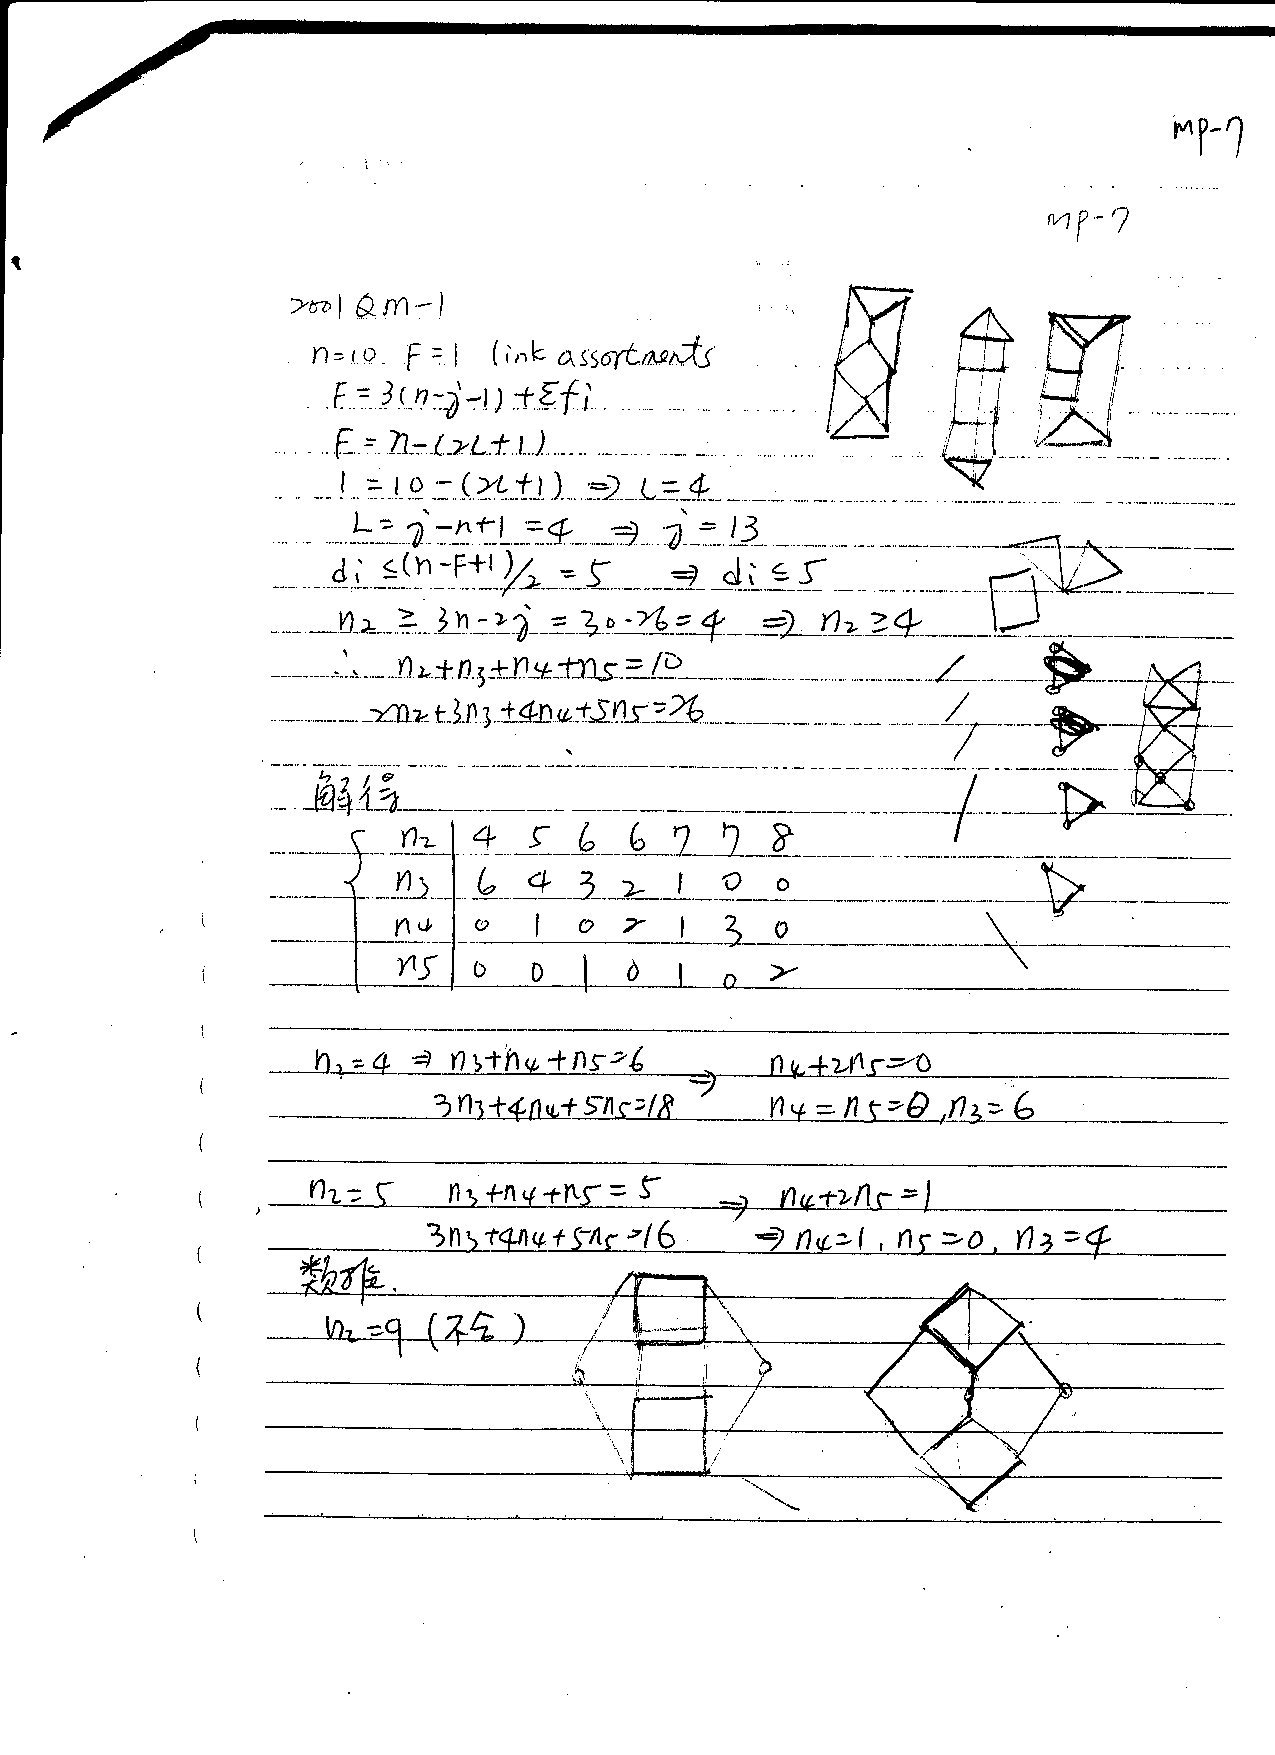 MP-7
MP-7
2001 QM-1
n=10. F=1 link assortments
F=3(n-j-1)+Σfi
F=n-(2L+1)
1=10-(2L+1) ⇒ L=4
L=j-n+1=4 ⇒ j=13
di≤(n-F+1)/2=5 ⇒ di≤5
n2 ≥ 3n-2j=30-26=4 ⇒ n2≥4
∴ n2+n3+n4+n5=10
2n2+3n3+4n4+5n5=26
解得
n2 | 4 5 6 6 7 7 8
n3 | 6 4 3 2 1 0 0
n4 | 0 1 0 2 1 3 0
n5 | 0 0 1 0 1 0 2
n2=4 ⇒ n3+n4+n5=6 ⇒ n4+2n5=0
3n3+4n4+5n5=18 n4=n5=0, n3=6
n2=5 n3+n4+n5=5 ⇒ n4+2n5=1
3n3+4n4+5n5=16 ⇒ n4=1, n5=0, n3=4
类推.
n2=9 (不合)